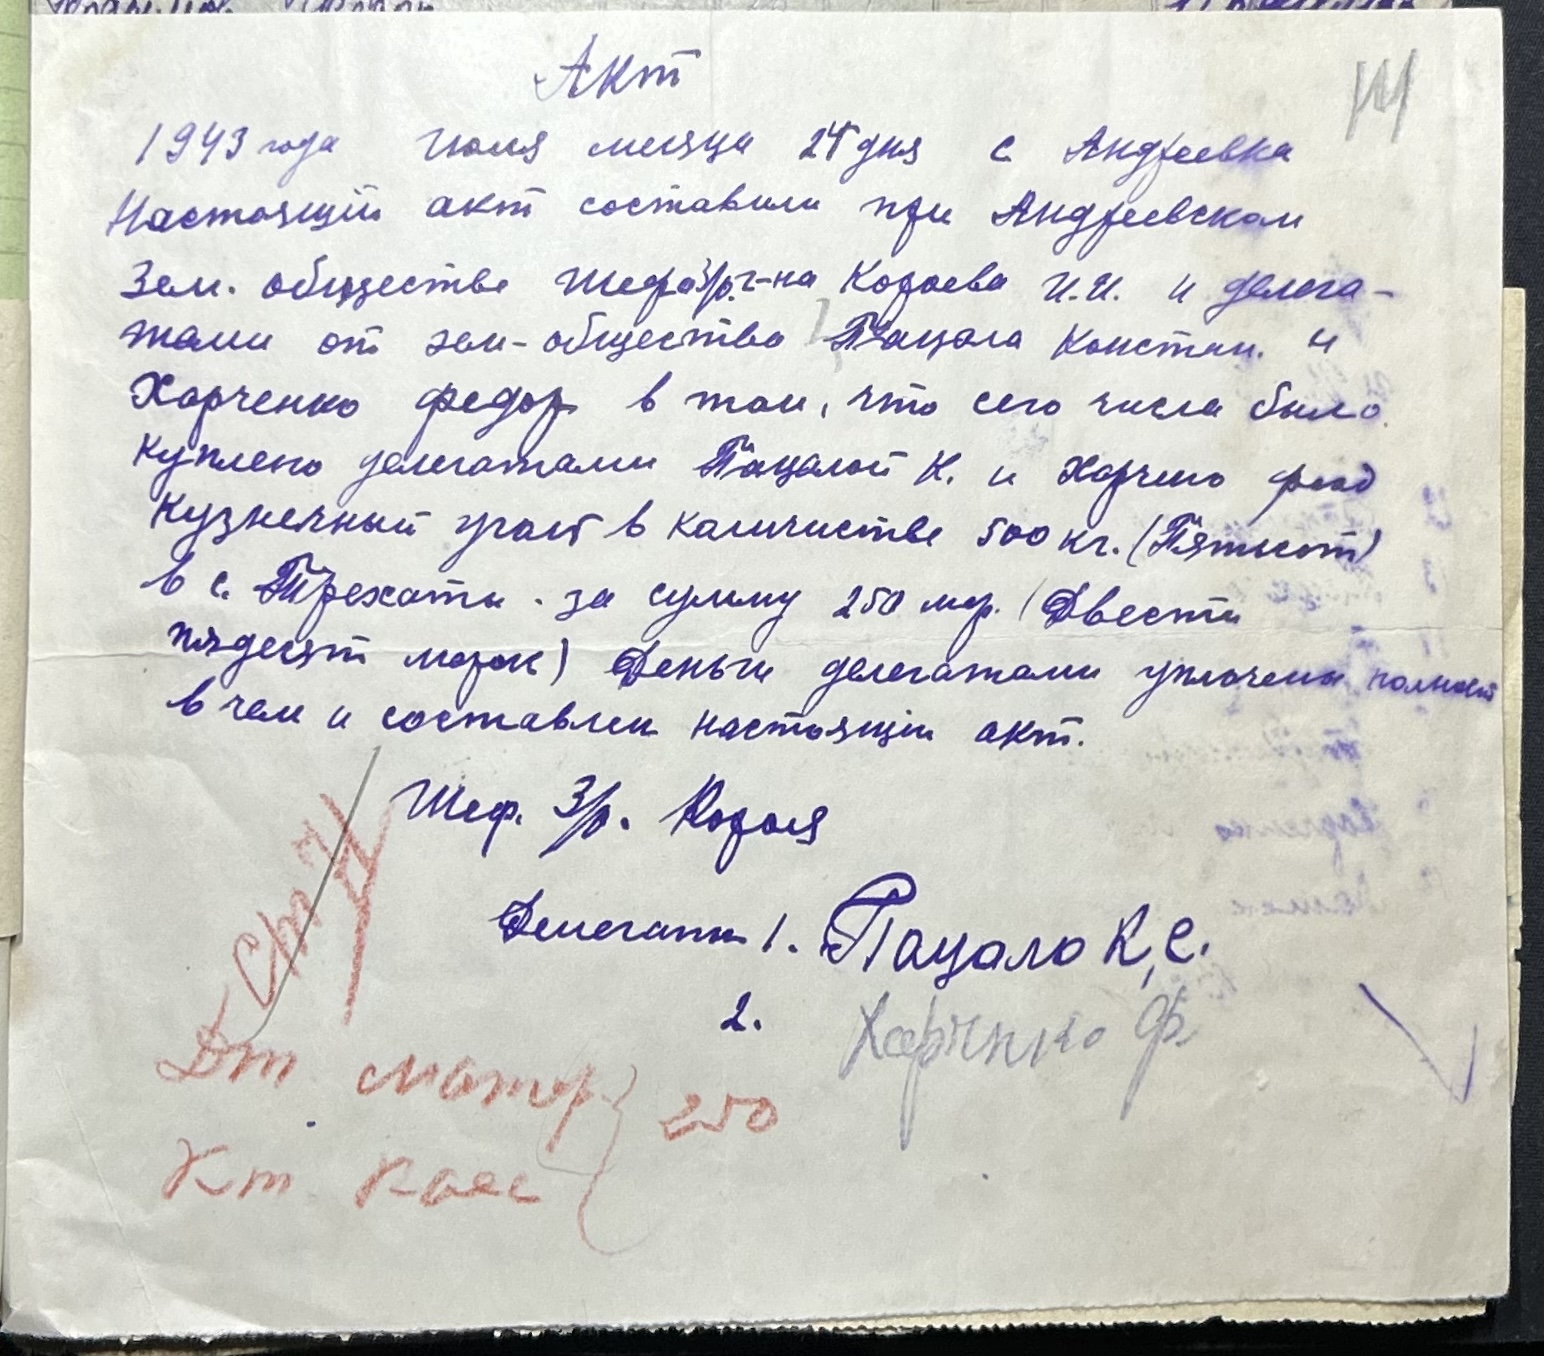 Акт
1943 года Июля месяца 24 дня с Андреевка
Настоящій акт составили при Андреевском
Зем. обществе Шефа З/р. г-на Короева И.И. и делега-
тами от зем-общества Пацала Констан. и
Харченко Федор в том, что сего числа было
куплено делегатами Пацалой К. и Харчено Фед
Кузнечный уголь в количистве 500 кг. (Пятьсот)
в с. Трехаты. за сумму 250 мр. (Двести
пядесят марок) Деньги делегатами уплочены полност
в чем и составлен настоящій акт.
Шеф. З/р.
Делегаты 1. Пацало К.С.
2. Харченко Ф.
Дт матер } 250
Кт. Касс